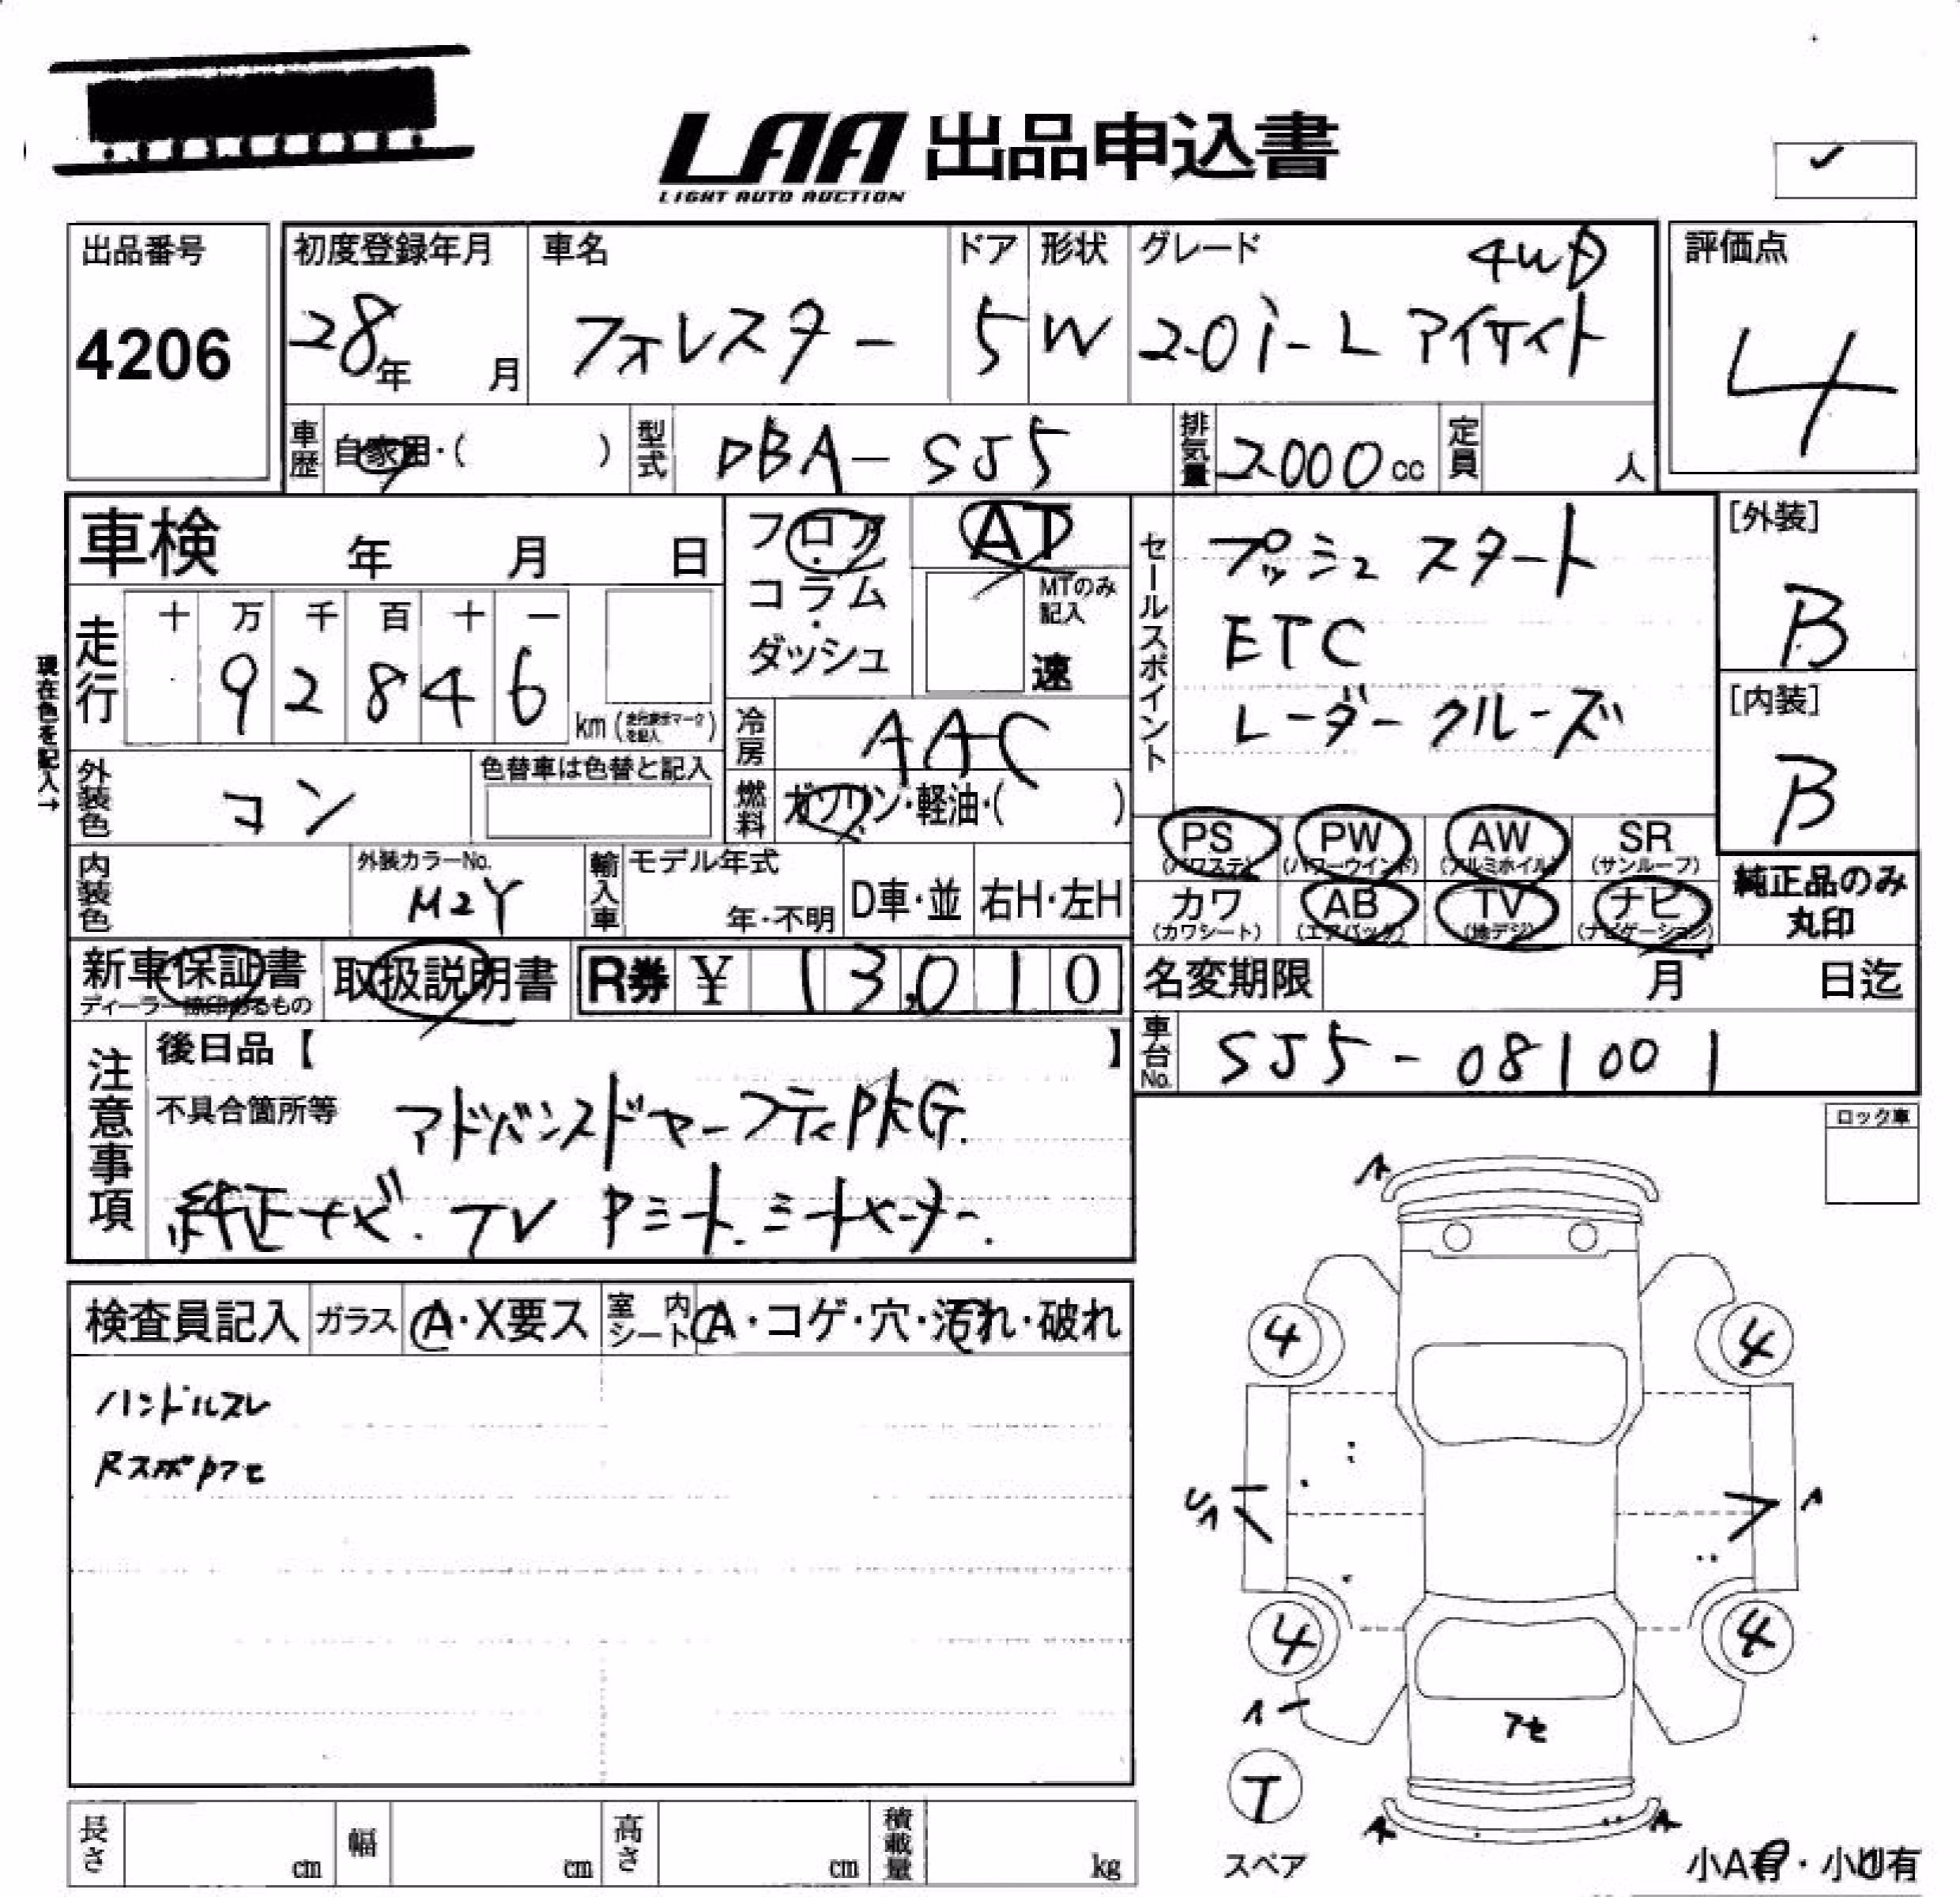 LAA 出品申込書
LIGHT AUTO AUCTION
出品番号
4206
初度登録年月
28年 月
車名
フォレスター
ドア
5
形状
W
グレード 4WD
2.0i-L アイサイト
評価点
4
車歴 自家用・( )
型式 DBA-SJ5
排気量 2000cc
定員 人
車検 年 月 日
フロア・コラム・ダッシュ
AT
MTのみ記入
速
セールスポイント
プッシュスタート
ETC
レーダークルーズ
[外装]
B
[内装]
B
現在色を記入→
走行
十 万 千 百 十 一
9 2 8 4 6
km
冷房 AAC
外装色 コン
色替車は色替と記入
燃料 ガソリン・軽油・( )
PS (パワステ) PW (パワーウインド) AW (アルミホイル) SR (サンルーフ)
カワ (カワシート) AB (エアバッグ) TV (地デジ) ナビ (ナビゲーション)
純正品のみ
丸印
内装色
外装カラーNo.
M2Y
輸入車 モデル年式
年・不明
D車・並 右H・左H
新車保証書
ディーラー捺印あるもの
取扱説明書
R券 ¥ 13,010
名変期限 月 日迄
車台No. SJ5-081001
注意事項
後日品【 】
不具合箇所等 アドバンスドセーフティPKG.
純正ナビ.TV Pシート.シートヒーター.
ロック車
検査員記入 ガラス A・X要ス 室内シート A・コゲ・穴・汚れ・破れ
ハンドルスレ
Rスポ
A
4 4
A
4 4
A
T
スペア
A A
小A有・小U有
長さ cm 幅 cm 高さ cm 積載量 kg